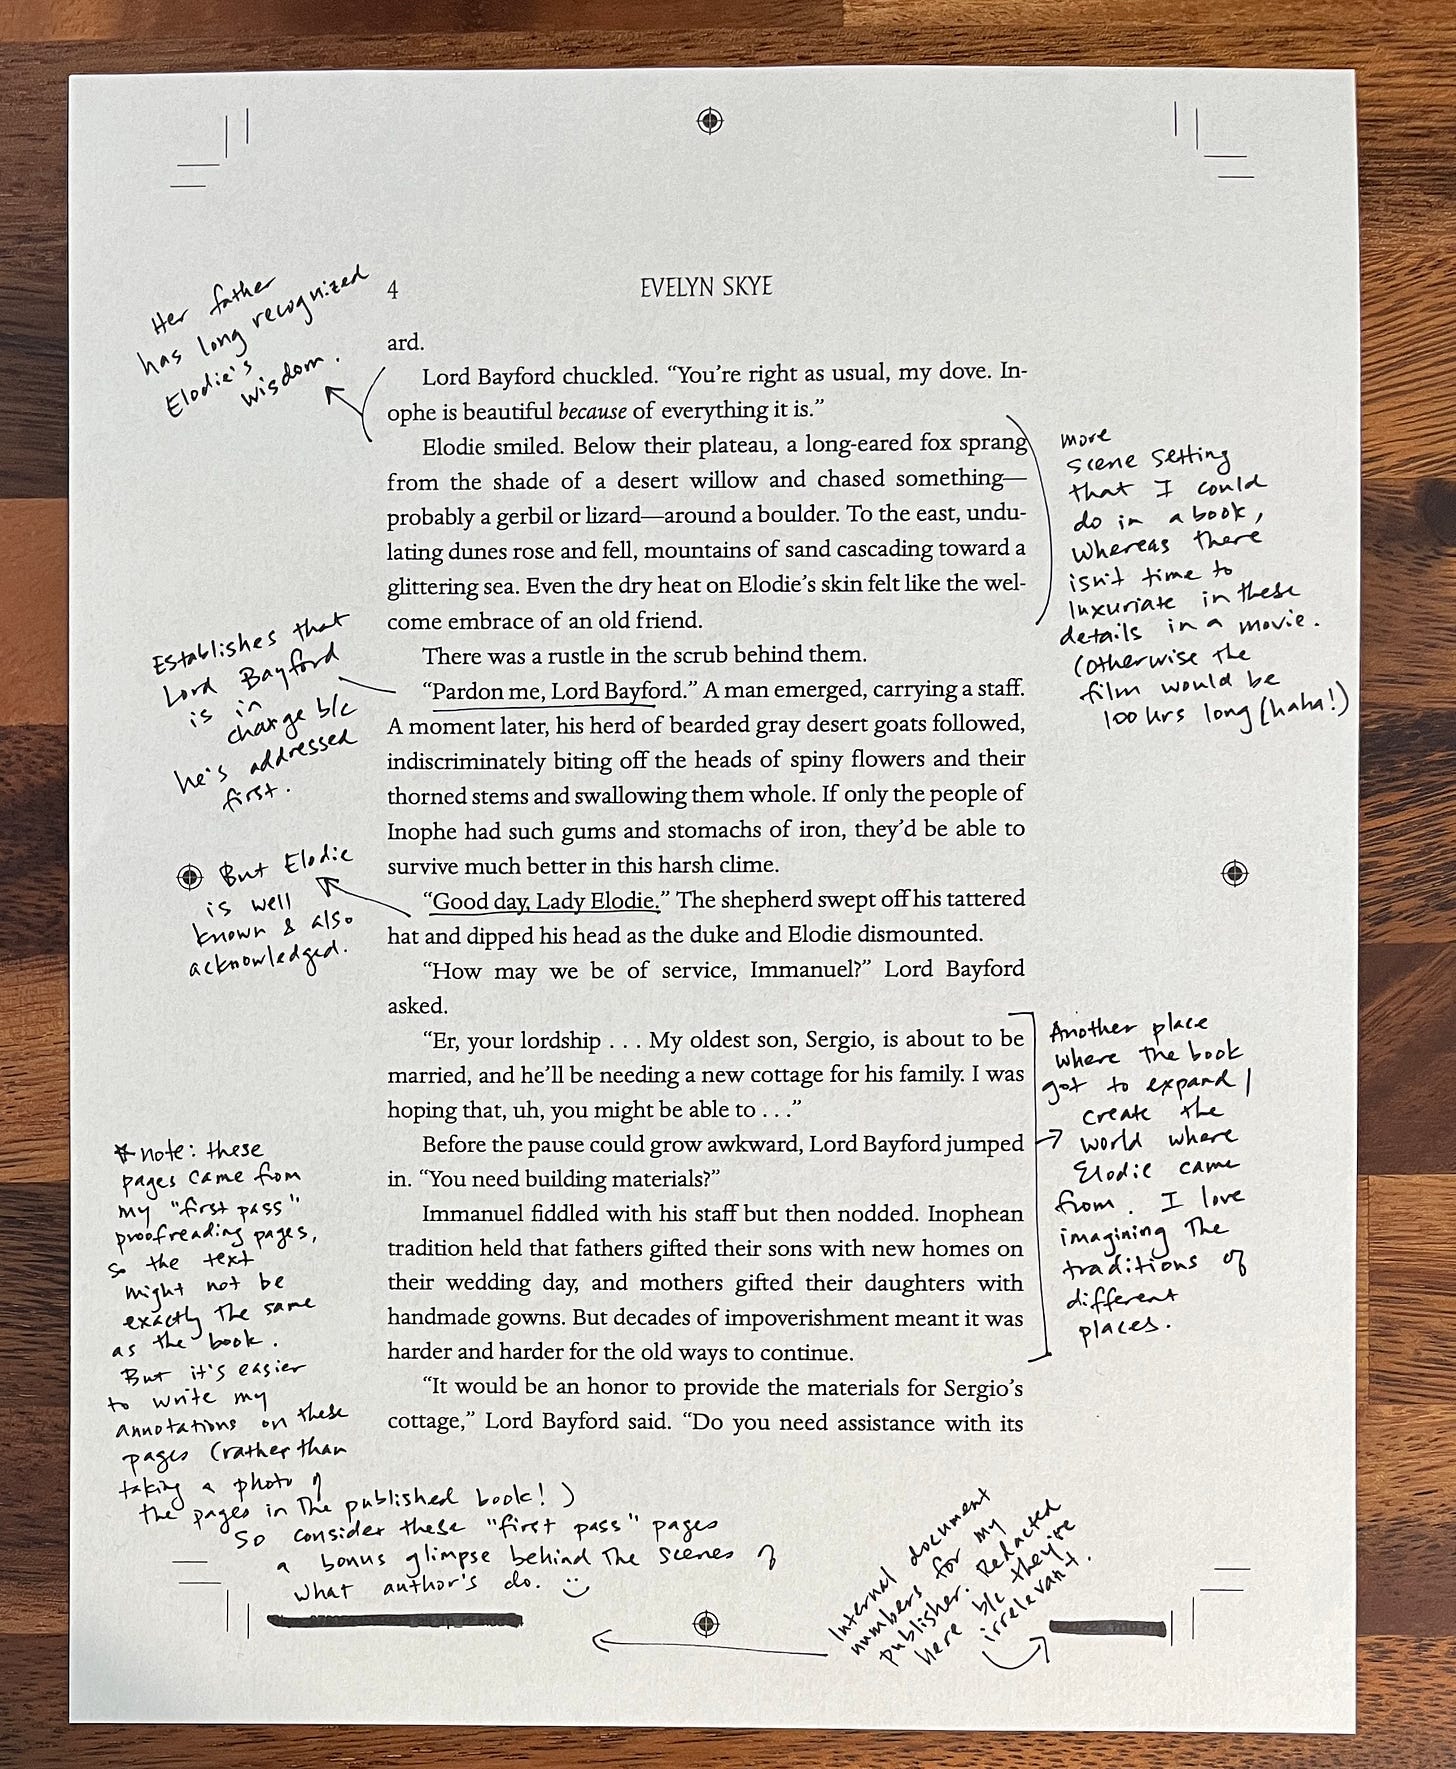 4
EVELYN SKYE
Her father
has long recognized
Elodie's
wisdom.
ard.
Lord Bayford chuckled. “You’re right as usual, my dove. In-
ophe is beautiful because of everything it is.”
Elodie smiled. Below their plateau, a long-eared fox sprang
from the shade of a desert willow and chased something—
probably a gerbil or lizard—around a boulder. To the east, undu-
lating dunes rose and fell, mountains of sand cascading toward a
glittering sea. Even the dry heat on Elodie’s skin felt like the wel-
come embrace of an old friend.
more
scene setting
that I could
do in a book,
whereas there
isn't time to
luxuriate in these
details in a movie.
(otherwise the
film would be
100 hrs long (haha!)
There was a rustle in the scrub behind them.
“Pardon me, Lord Bayford.” A man emerged, carrying a staff.
A moment later, his herd of bearded gray desert goats followed,
indiscriminately biting off the heads of spiny flowers and their
thorned stems and swallowing them whole. If only the people of
Inophe had such gums and stomachs of iron, they’d be able to
survive much better in this harsh clime.
Establishes that
Lord Bayford
is in
charge b/c
he's addressed
first.
“Good day, Lady Elodie.” The shepherd swept off his tattered
hat and dipped his head as the duke and Elodie dismounted.
But Elodie
is well
known & also
acknowledged.
“How may we be of service, Immanuel?” Lord Bayford
asked.
“Er, your lordship . . . My oldest son, Sergio, is about to be
married, and he’ll be needing a new cottage for his family. I was
hoping that, uh, you might be able to . . .”
Before the pause could grow awkward, Lord Bayford jumped
in. “You need building materials?”
Immanuel fiddled with his staff but then nodded. Inophean
tradition held that fathers gifted their sons with new homes on
their wedding day, and mothers gifted their daughters with
handmade gowns. But decades of impoverishment meant it was
harder and harder for the old ways to continue.
Another place
where the book
got to expand/
create the
world where
Elodie came
from. I love
imagining the
traditions of
different
places.
“It would be an honor to provide the materials for Sergio’s
cottage,” Lord Bayford said. “Do you need assistance with its
* note: these
pages came from
my "first pass"
proofreading pages,
so the text
might not be
exactly the same
as the book.
But it's easier
to write my
annotations on these
pages (rather than
taking a photo of
the pages in the published book!)
So consider these "first pass" pages
a bonus glimpse behind the scenes of
what author's do. :)
Internal document
numbers for my
publisher. Redacted
here b/c they're
irrelevant.